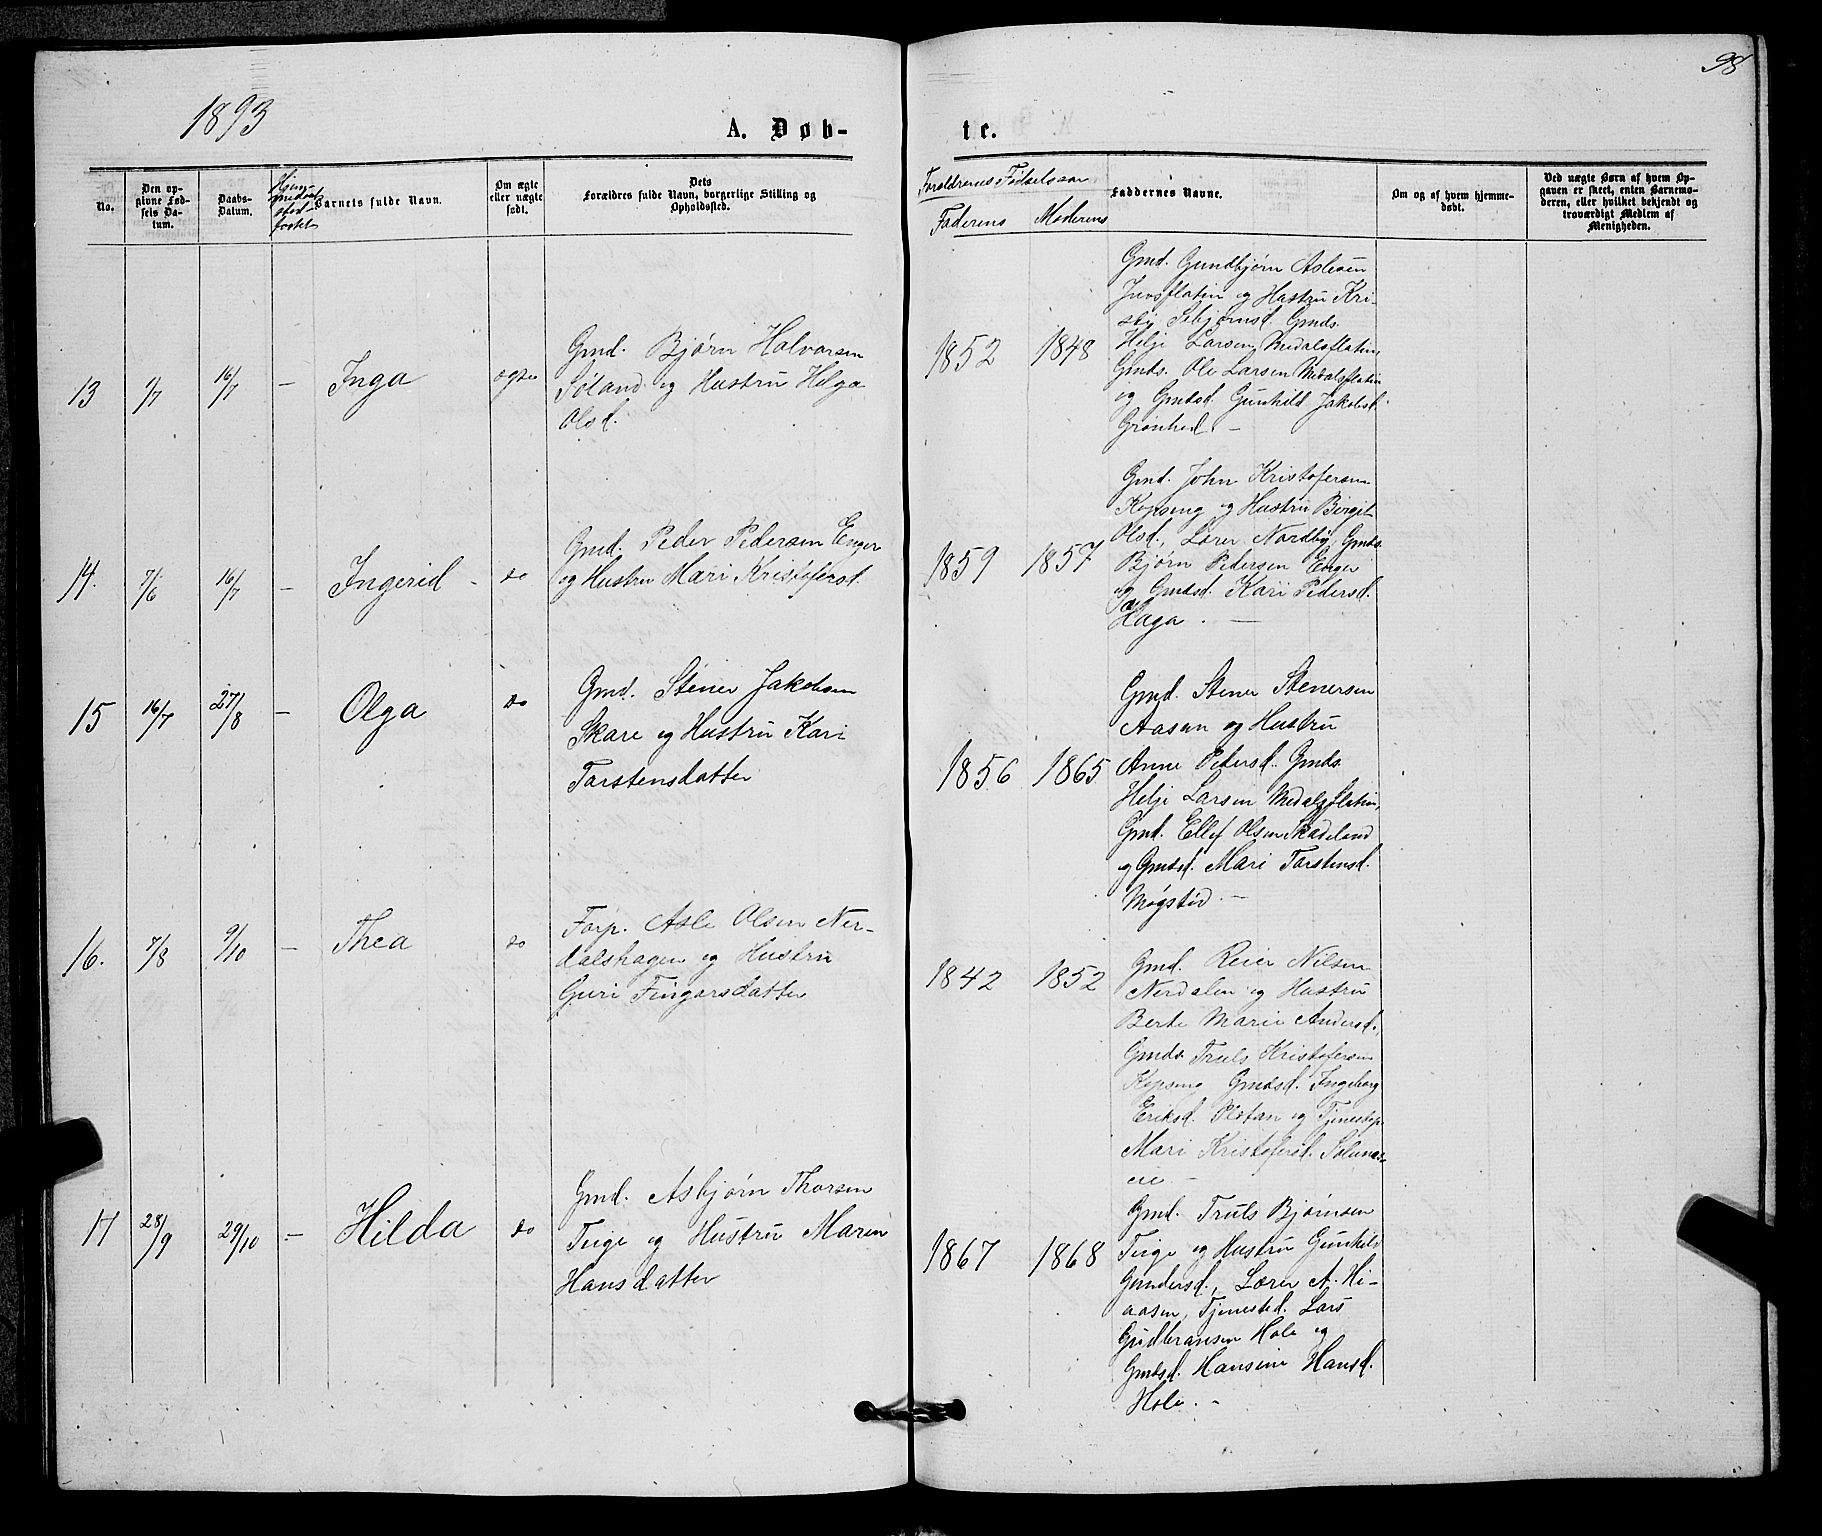 98
1893
A. Døb-
te.
No.
Den op-
givne Fød-
sels Da-
tum.
Daabs-
Datum.
Barnets fulde Navn.
Om ægte
eller nægte
født.
Dets
Forældres fulde Navn, borgerlige Stilling og
Opholdssted.
Forældrenes Fødselsaar
Faderens Moderens
Faddernes Navne.
Om og af hvem hjemme-
døbt.
Ved nægte Børn af hvem Op-
gaven er skeet, enten Barnemo-
deren, eller hvilket bekjendt og
troværdigt Medlem af
Menigheden.
13
1/7
16/7
–
Inga
ægte
Gmd. Bjørn Halvorsen
Søland og Hustru Helga
Olsd.
1852
1848
Gmd. Gundbjørn Aslesen
Juvsflatin og Hustru Kri-
sti Sebjørnsd. Gmds.
Helje Larsen Medalsflatin,
Gmds. Ole Larsen Medalsflatin
og Gmdsd. Gunhild Jakobsd.
Grønhed. –
14.
7/6
16/7
–
Ingerid
do
Gmd. Peder Pedersen Enger
og Hustru Mari Kristofersd.
1859
1857
Gmd. John Kristofersen
Kopseng og Hustru Birgit
Olsd., Lærer Nordby, Gmds.
Bjørn Pedersen Enger
og Gmdsd. Kari Pedersd.
Haga. –
15
16/7
27/8
–
Olga
do
Gmd. Stener Jakobsen
Skare og Hustru Kari
Torstensdatter
1856
1865
Gmd. Stener Stenersen
Aasen og Hustru
Anne Pedersd. Gmds.
Helje Larsen Medalsflatin,
Gmd. Ellef Olsen Skadeland
og Gmdsd. Mari Torstensd.
Møgstød. –
16.
7/8
9/10
–
Thea
do
Forp. Asle Olsen Ner-
dalshagen og Hustru
Guri Fingarsdatter
1842
1852
Gmd. Reier Nilsen
Nerdalen og Hustru
Berte Marie Andersd.,
Gmds. Truls Kristofersen
Kopseng, Gmdsd. Ingeborg
Eriksd. Plotan og Tjenestep.
Mari Kristofersd.
17
28/9
29/10
–
Hilda
do
Gmd. Asbjørn Thorsen
Teige og Hustru Maren
Hansdatter
1867
1868
Gmd. Truls Bjørnsen
Teige og Hustru Gunhild
Gundersd., Lærer A. Hi-
aasen, Tjenested. Lars
Gudbransen Hole og
Gmdsd. Hansine Hansd.
Hole. –